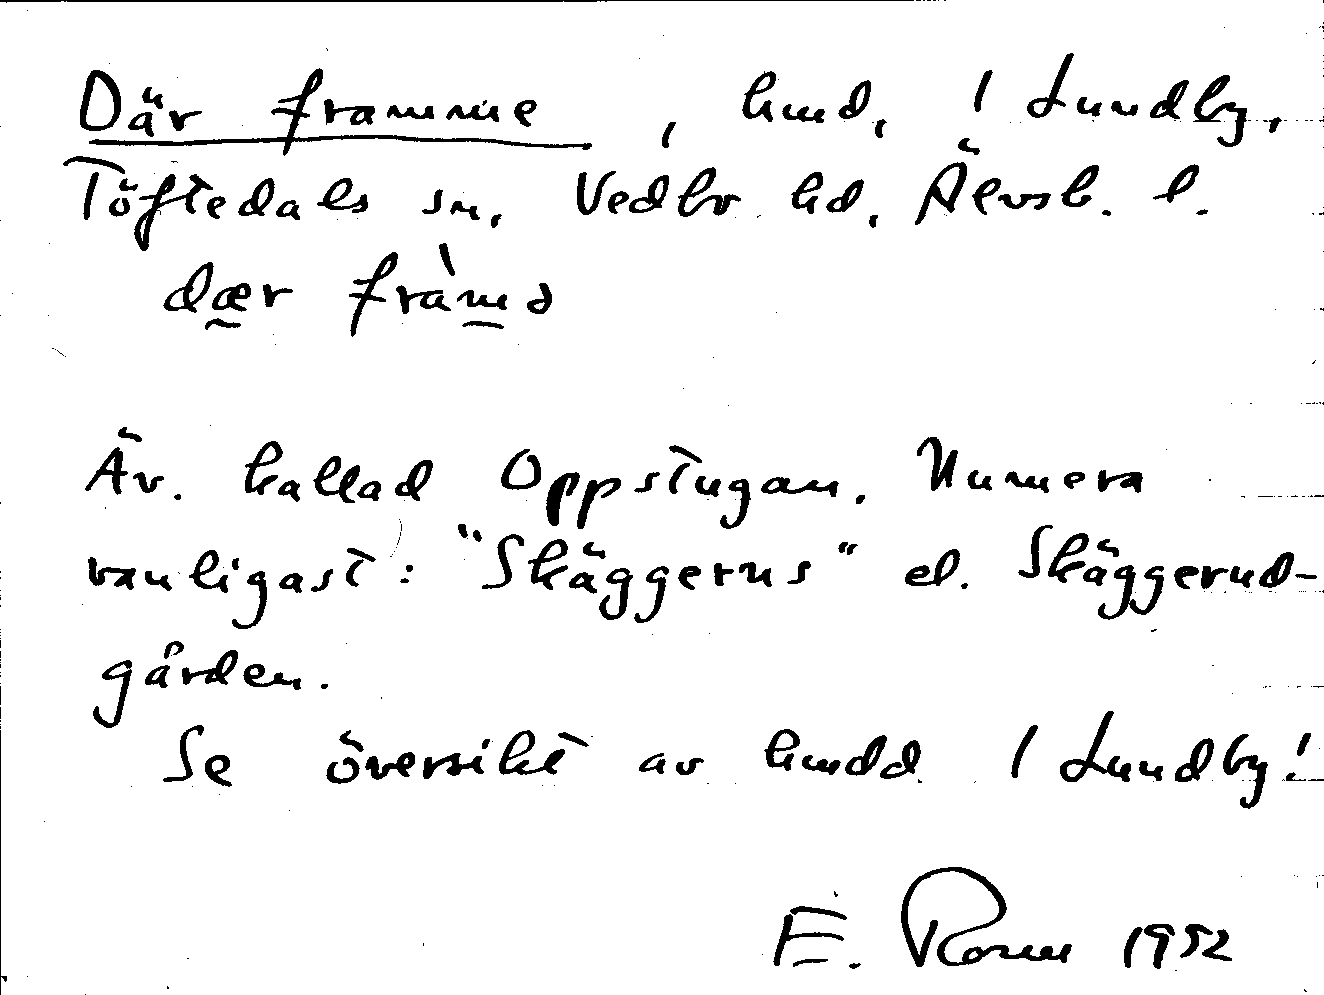 Där framme, hmd, 1 Lundby,
Töftedals sn, Vedbo hd, Älvsb. l.
dær fràmə
Äv. kallad Oppstugan. Numera
vanligast: "Skäggerus" el. Skäggerud-
gården.
Se översikt av hmdd 1 Lundby!
E. Rosell 1952